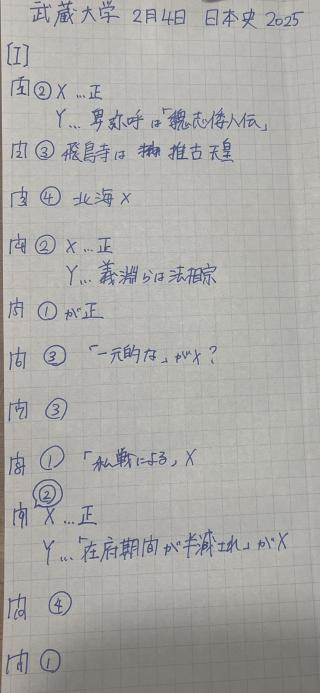 武蔵大学 2月4日 日本史 2025
[I]
問1 ② X…正
Y…卑弥呼は「魏志倭人伝」
問2 ③ 飛鳥寺は 推古天皇
問3 ④ 北海 X
問4 ② X…正
Y…義淵らは法相宗
問5 ① が正
問6 ③ 「一元的な」がX?
問7 ③
問8 ① 「私戦による」X
②
問9 X…正
Y…「在府期間が半減され」がX
問10 ④
問11 ①